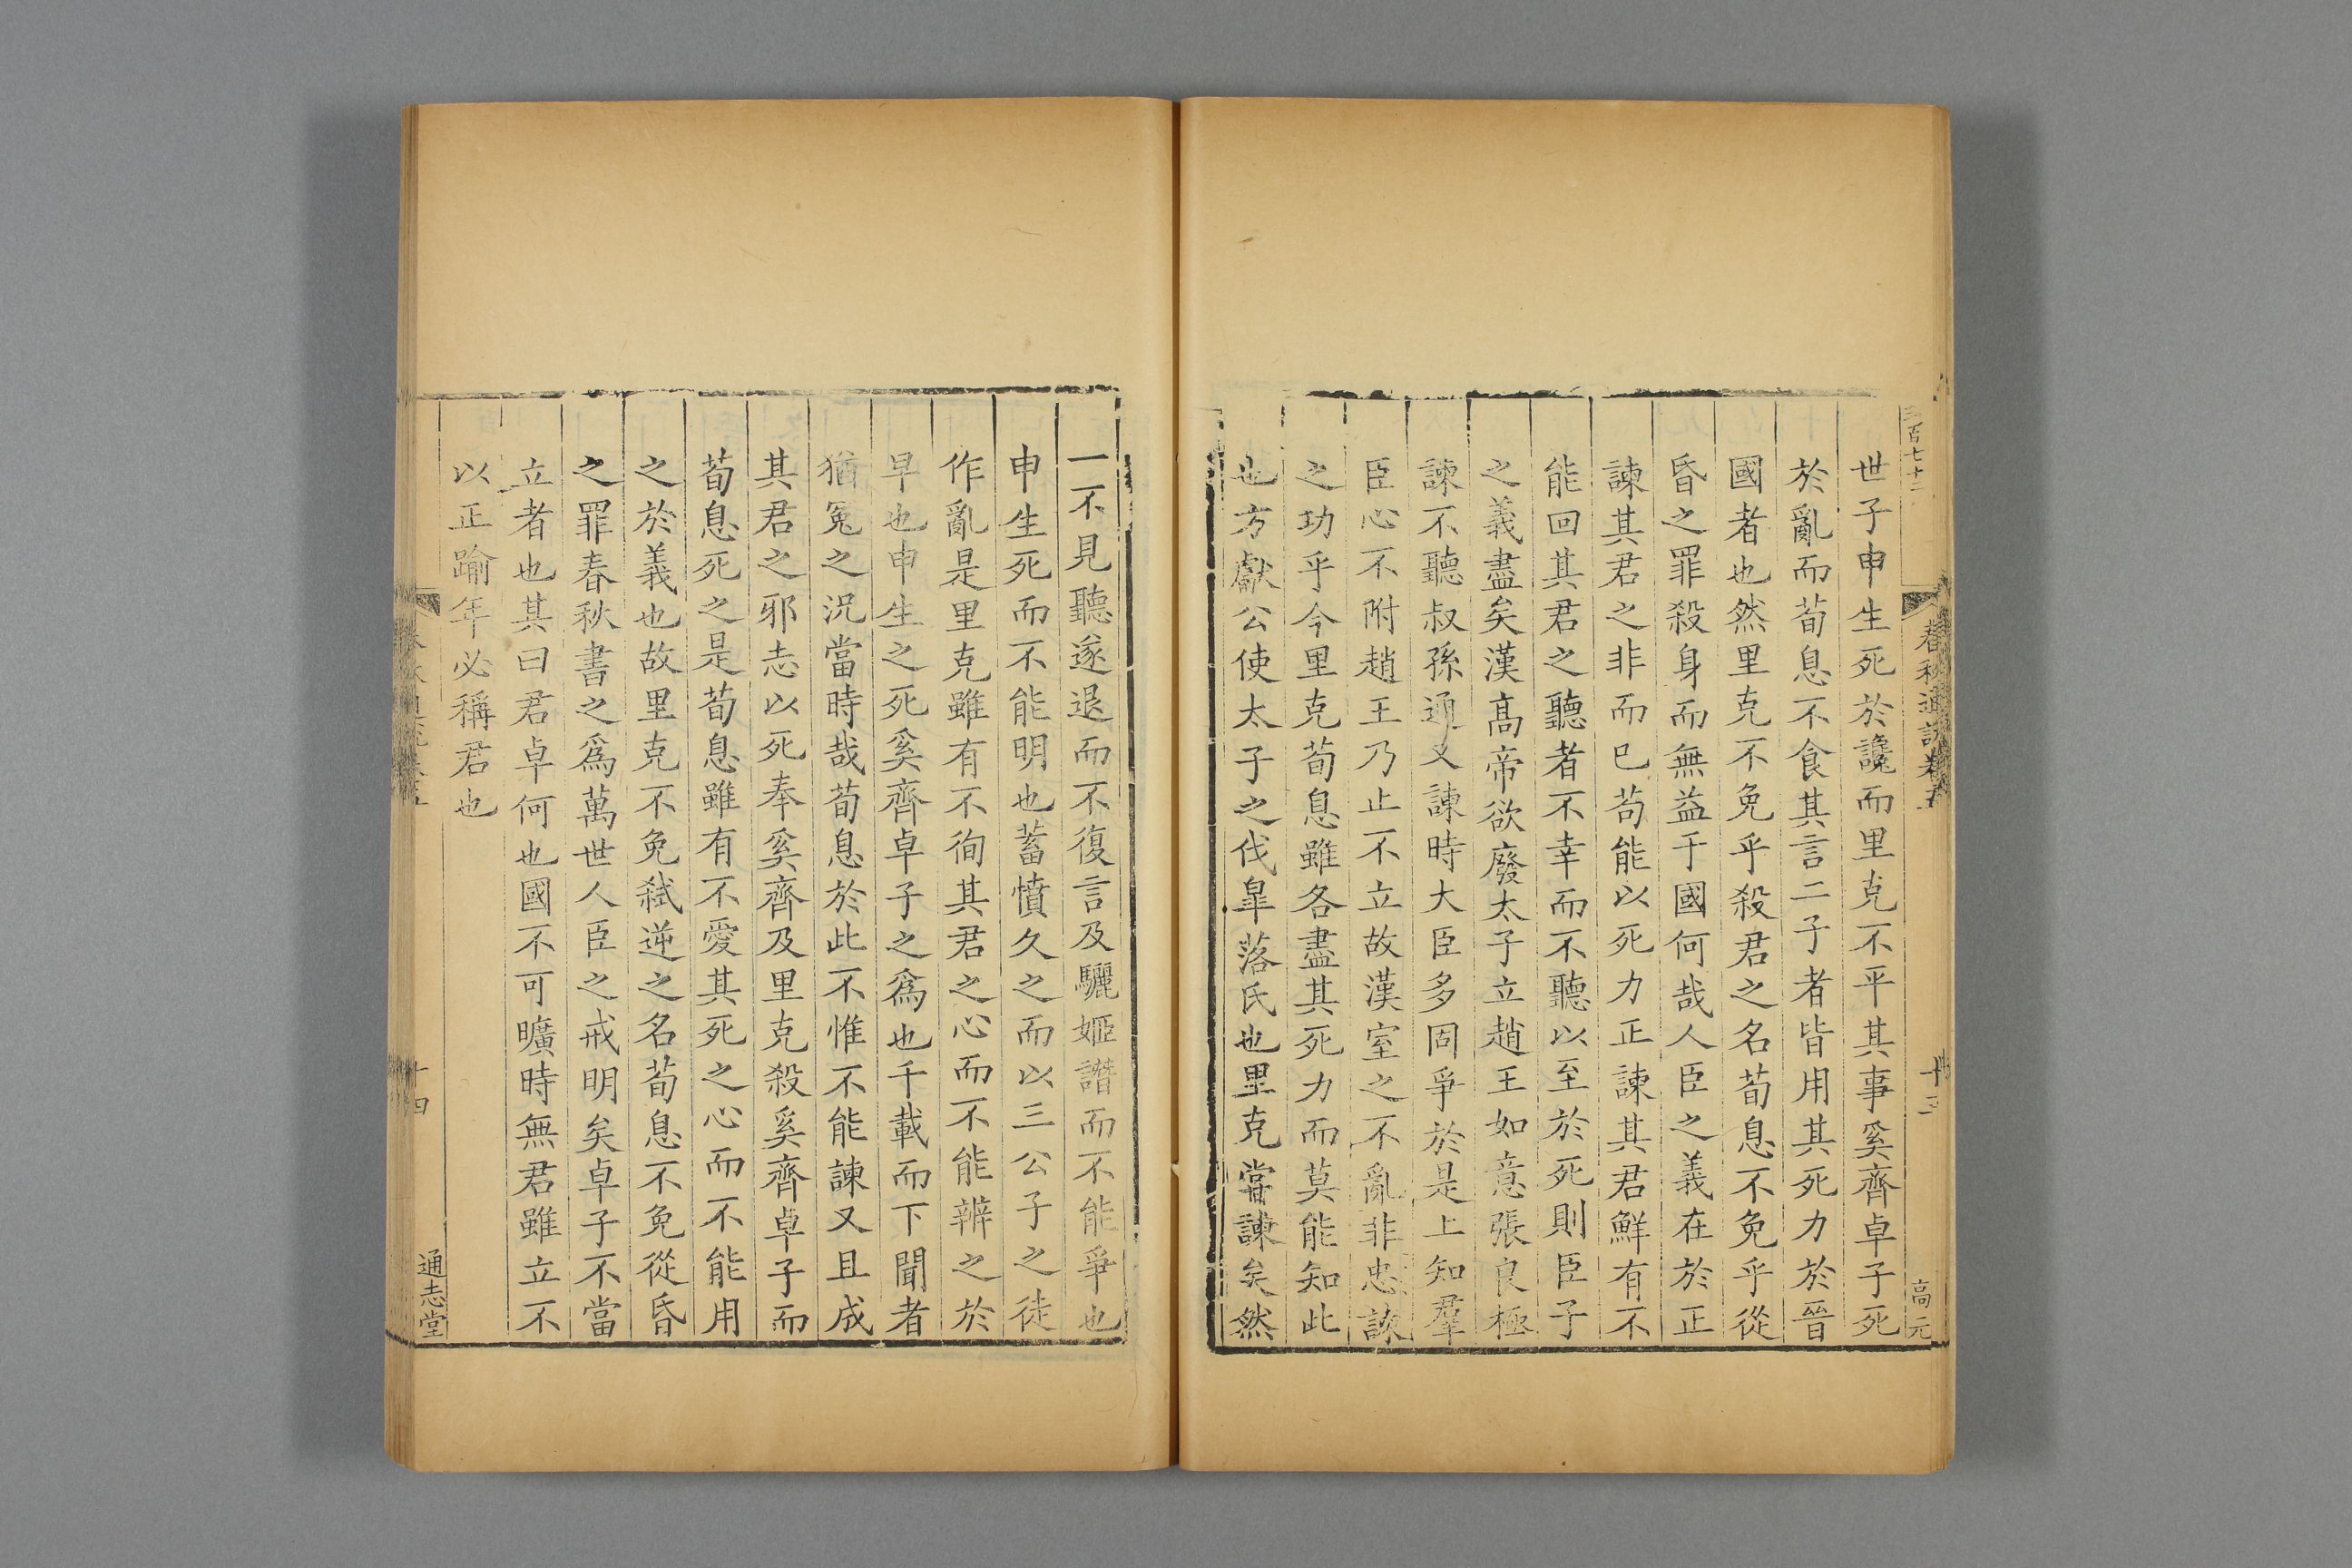 三百七十二
春秋通說卷五
十三
高元
世子申生死於讒而里克不平其事奚齊卓子死
於亂而荀息不食其言二子者皆用其死力於晉
國者也然里克不免乎殺君之名荀息不免乎從
昏之罪殺身而無益于國何哉人臣之義在於正
諫其君之非而已苟能以死力正諫其君鮮有不
能回其君之聽者不幸而不聽以至於死則臣子
之義盡矣漢髙帝欲廢太子立趙王如意張良極
諫不聽叔孫通又諫時大臣多固爭於是上知羣
臣心不附趙王乃止不立故漢室之不亂非忠諫
之功乎今里克荀息雖各盡其死力而莫能知此
也方獻公使太子之伐臯落氏也里克嘗諫矣然
一不見聽遂退而不復言及驪姬譖而不能爭也
申生死而不能明也蓄憤久之而以三公子之徒
作亂是里克雖有不徇其君之心而不能辨之於
早也申生之死奚齊卓子之爲也千載而下聞者
猶冤之況當時哉荀息於此不惟不能諫又且成
其君之邪志以死奉奚齊及里克殺奚齊卓子而
荀息死之是荀息雖有不愛其死之心而不能用
之於義也故里克不免弒逆之名荀息不免從昏
之罪春秋書之爲萬世人臣之戒明矣卓子不當
立者也其曰君卓何也國不可曠時無君雖立不
以正踰年必稱君也
十四
通志堂